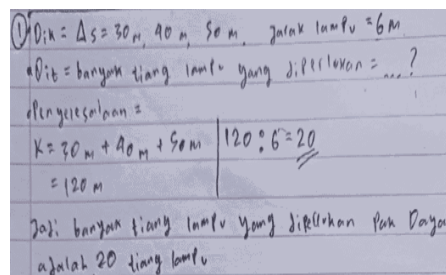 ① Dik = Δs = 30 m, 40 m, 50 m, Jarak lampu = 6 m
Dit = banyak tiang lampu yang diperlukan = ... ?
Penyelesaian =
K = 30 m + 40 m + 50 m | 120 : 6 = 20
= 120 m
Jadi banyak tiang lampu yang diperlukan Pak Daya
adalah 20 tiang lampu